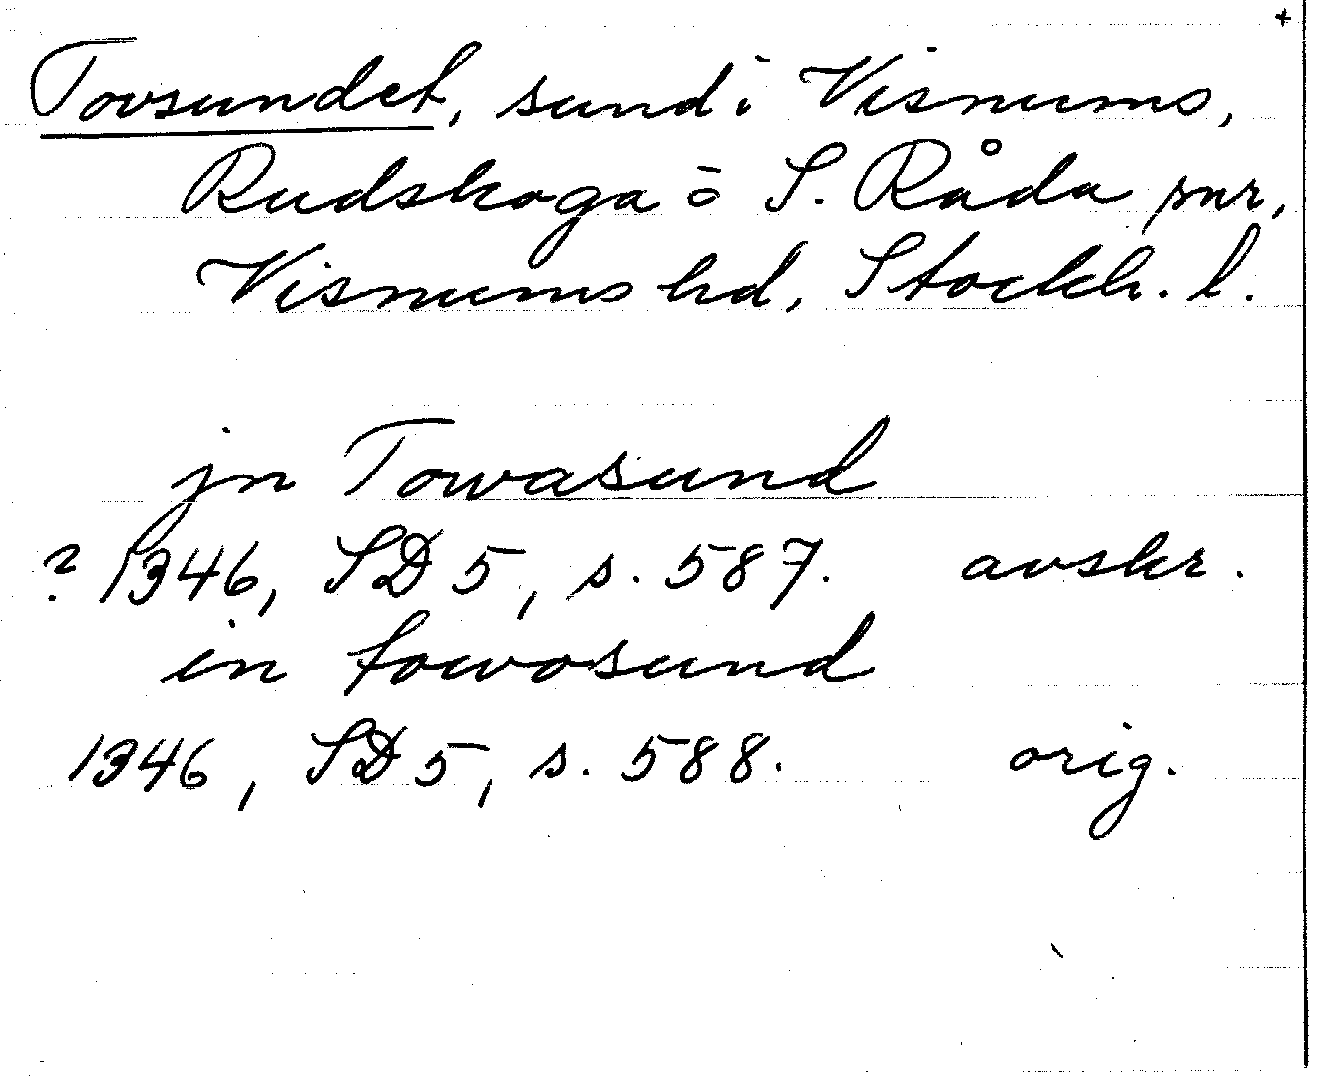 +
Tovsundet, sund i Visnums,
Rudskoga o S. Råda snr,
Visnums hd, Stockh. l.
jn Towasund
? 1346, SD 5, s. 587. avskr.
in towosund
1346, SD 5, s. 588. orig.